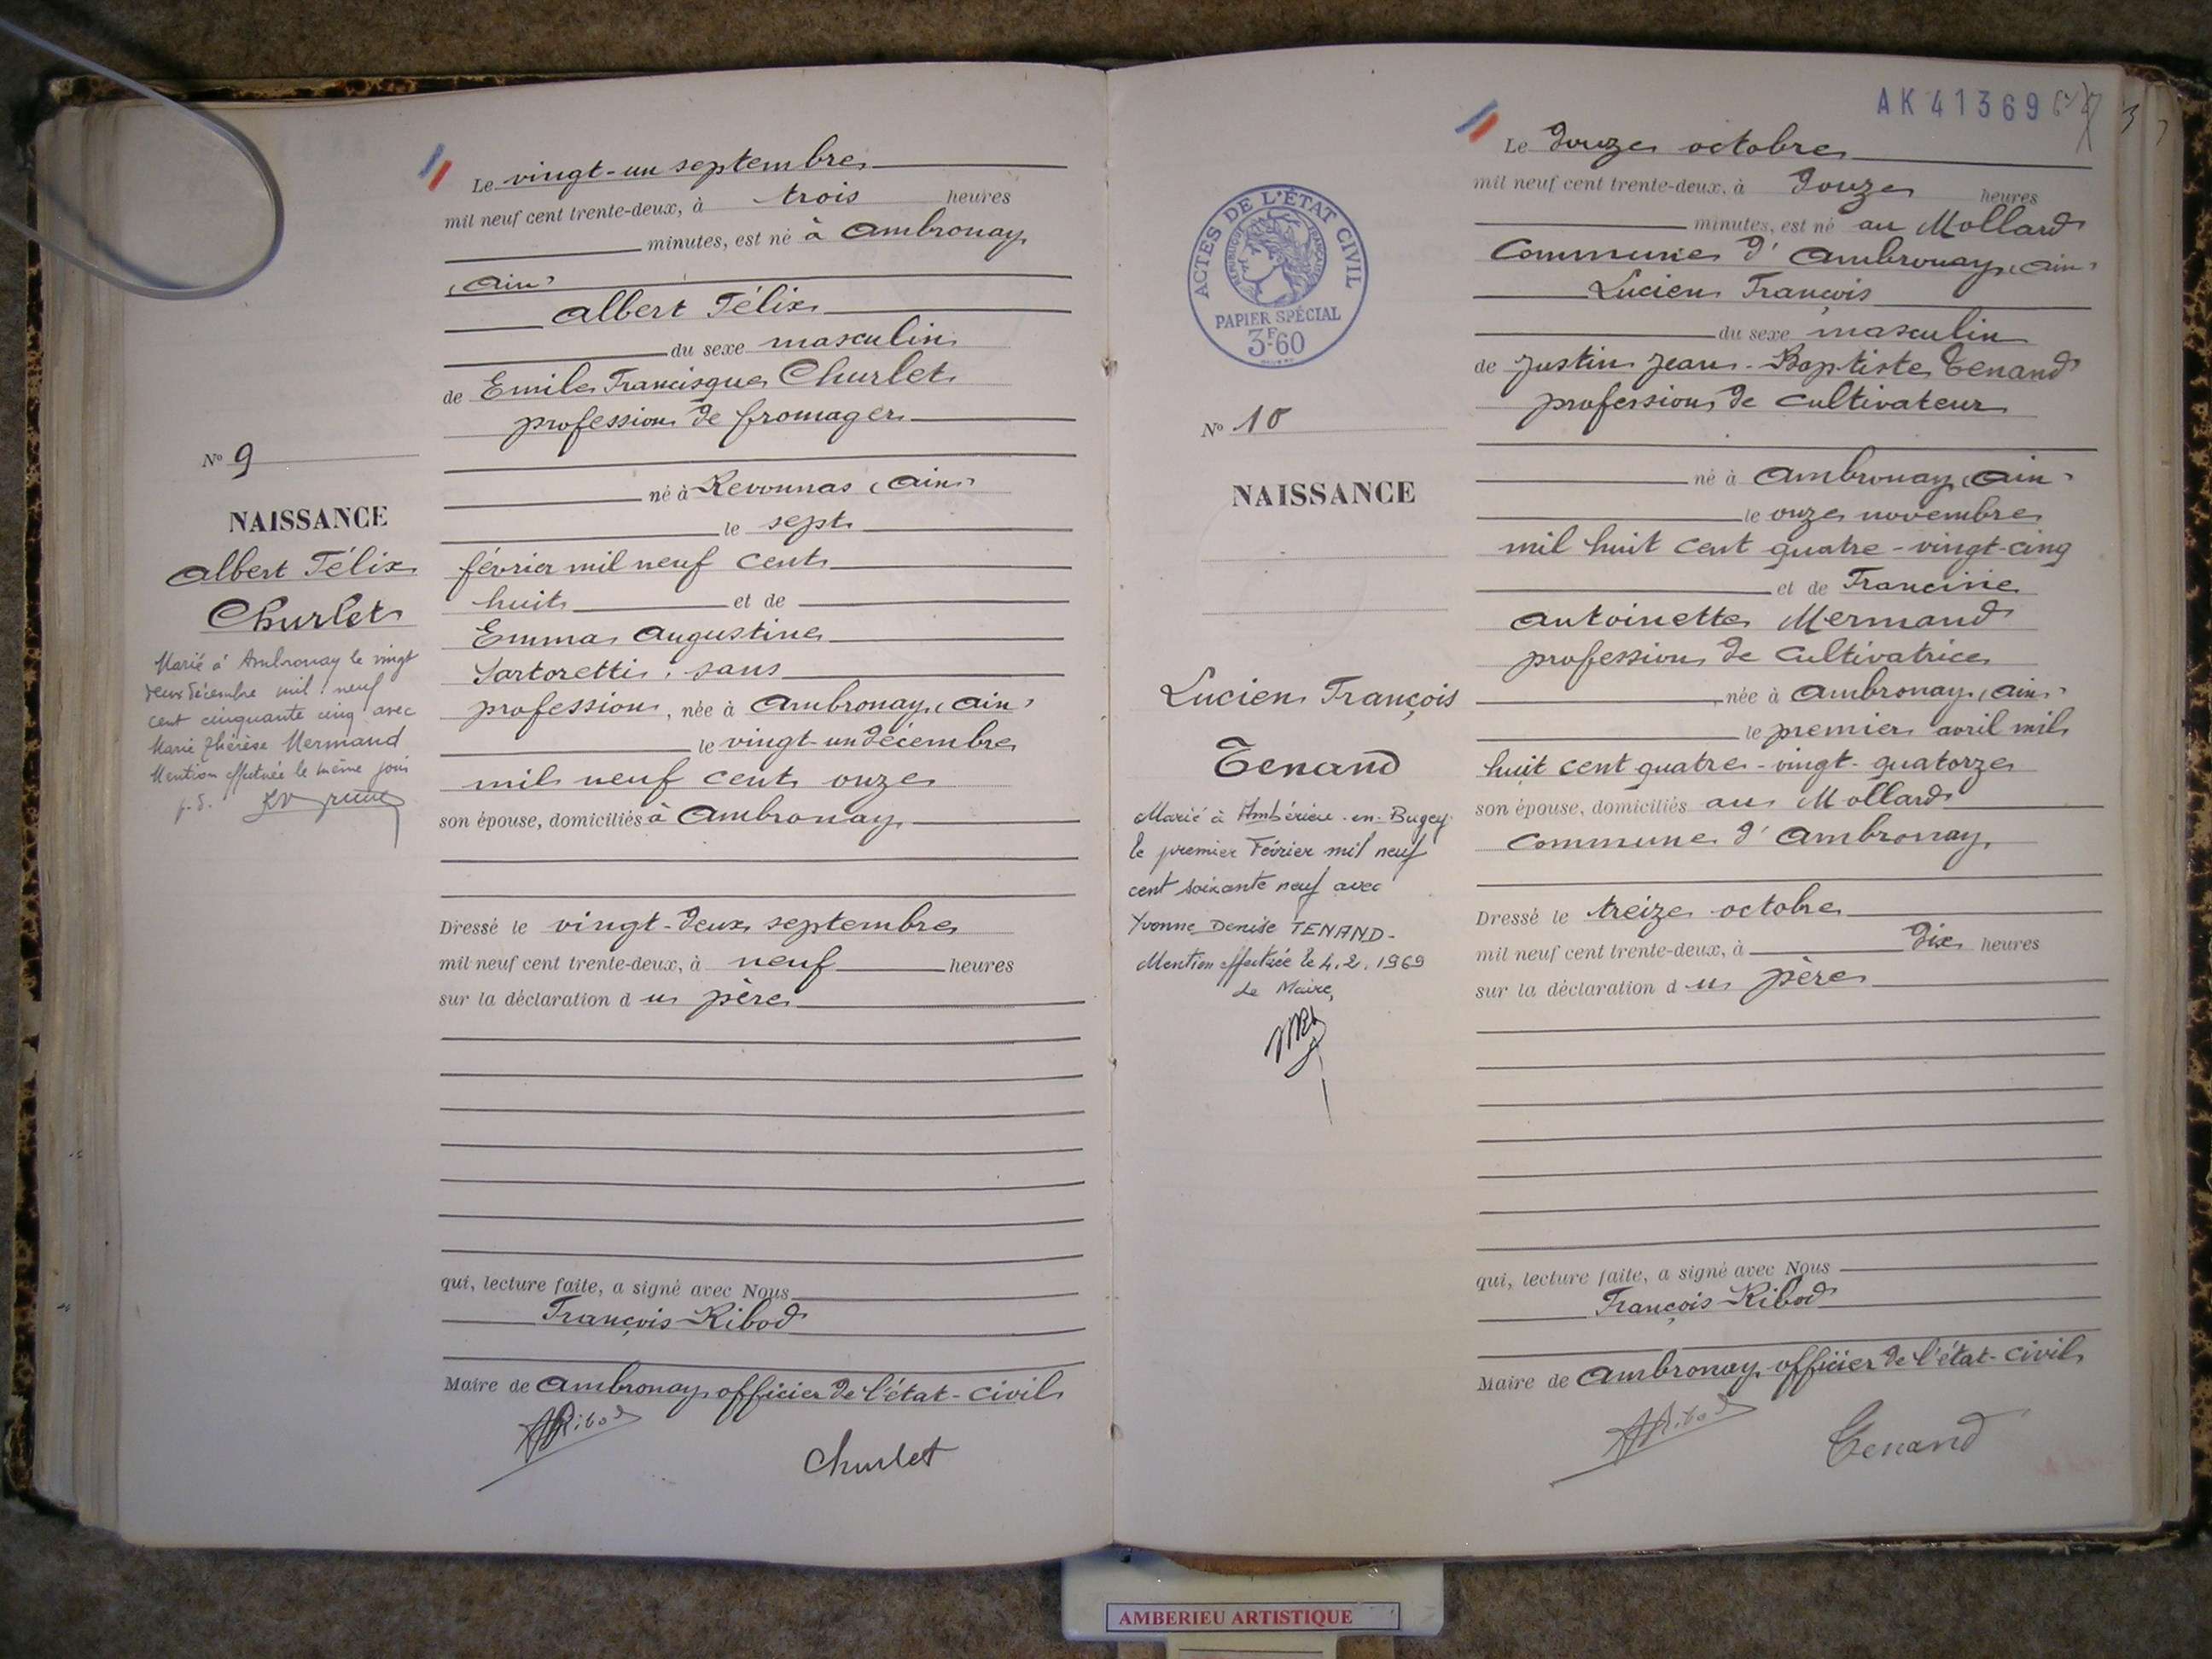 Le vingt-un septembre
mil neuf cent trente-deux, à trois heures
minutes, est né à Ambronay
(Ain)
Albert Félix
du sexe masculin
de Emile Francisque Churlet
profession de fromager
né à Revonnas (Ain)
le sept
février mil neuf cent
huit et de
Emma Augustine
Sartoretti, sans
profession, née à Ambronay (Ain)
le vingt-un décembre
mil neuf cent onze
son épouse, domiciliés à Ambronay
Dressé le vingt-deux septembre
mil neuf cent trente-deux, à neuf heures
sur la déclaration du père
qui, lecture faite, a signé avec Nous
François Ribod
Maire de Ambronay officier de l'état-civil
Ribod
Churlet
N° 9
NAISSANCE
Albert Félix
Churlet
Marié à Ambronay le vingt
deux décembre mil neuf
cent cinquante cinq avec
Marie Thérèse Mermand
Mention effectuée le même jour
AK 41369
Le douze octobre
mil neuf cent trente-deux, à douze heures
minutes, est né au Mollard
Commune d'Ambronay (Ain)
Lucien François
du sexe masculin
de Justin Jean-Baptiste Tenand
profession de cultivateur
né à Ambronay (Ain)
le onze novembre
mil huit cent quatre-vingt-cinq
et de Francine
Antoinette Mermand
profession de cultivatrice
née à Ambronay (Ain)
le premier avril mil
huit cent quatre-vingt-quatorze
son épouse, domiciliés au Mollard
Commune d'Ambronay
Dressé le treize octobre
mil neuf cent trente-deux, à dix heures
sur la déclaration du père
qui, lecture faite, a signé avec Nous
François Ribod
Maire de Ambronay officier de l'état-civil
Ribod
Tenand
ACTES DE L'ÉTAT CIVIL
RÉPUBLIQUE FRANÇAISE
PAPIER SPÉCIAL
3F.60
N° 10
NAISSANCE
Lucien François
Tenand
Marié à Ambérieu-en-Bugey
le premier Février mil neuf
cent soixante neuf avec
Yvonne Denise TENAND-
Mention effectuée le 4.2.1969
Le Maire,
AMBERIEU ARTISTIQUE